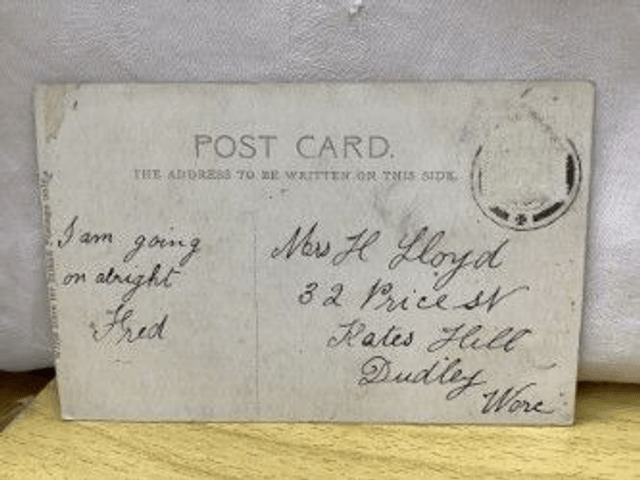 POST CARD.
THE ADDRESS TO BE WRITTEN ON THIS SIDE.
I am going
on alright
Fred
Mrs H Lloyd
32 Price st
Kates Hill
Dudley
Worc